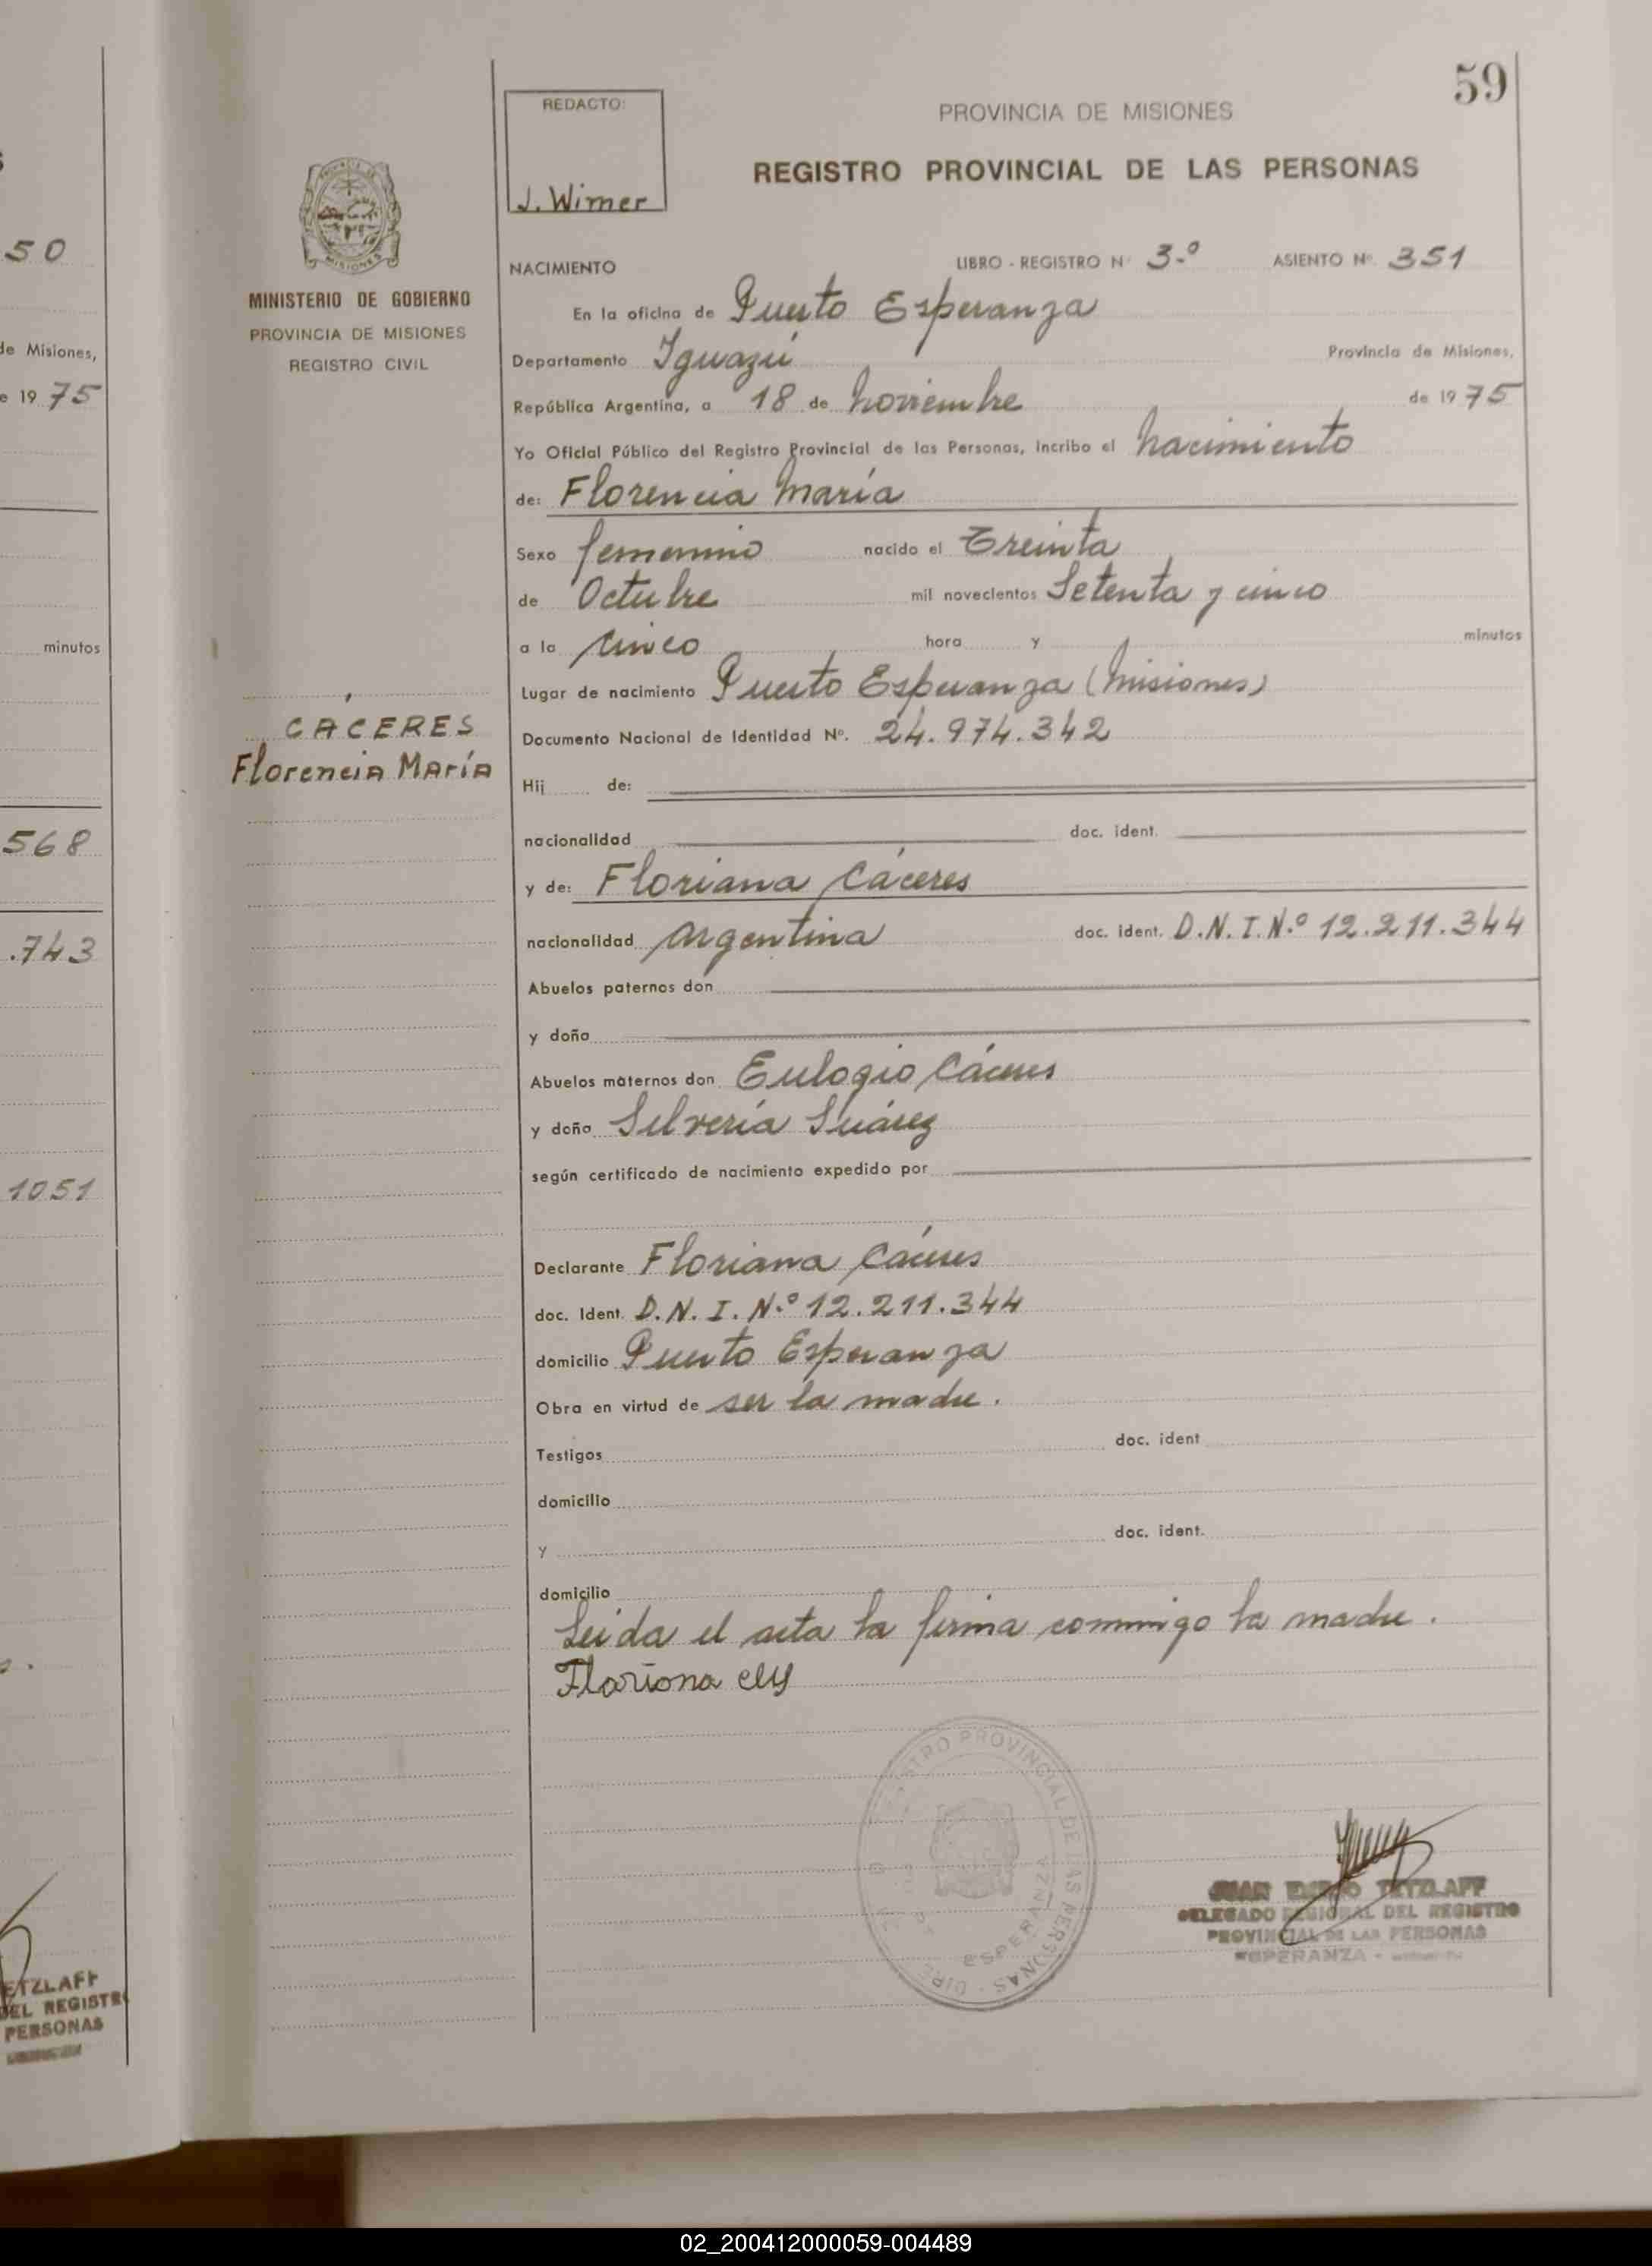 50
de Misiones,
e 19 75
minutos
568
.743
1051
ETZLAFF
DEL REGISTR
PERSONAS
59
REDACTO:
J. Wimer
PROVINCIA DE MISIONES
REGISTRO PROVINCIAL DE LAS PERSONAS
MISIONES
MINISTERIO DE GOBIERNO
PROVINCIA DE MISIONES
REGISTRO CIVIL
NACIMIENTO LIBRO - REGISTRO Nº 3.º ASIENTO Nº. 351
En la oficina de Puerto Esperanza
Departamento Iguazú Provincia de Misiones,
República Argentina, a 18 de Noviembre de 19 75
Yo Oficial Público del Registro Provincial de las Personas, incribo el nacimiento
de: Florencia María
Sexo femenino nacido el Treinta
de Octubre mil novecientos Setenta y cinco
a la cinco hora y minutos
Lugar de nacimiento Puerto Esperanza (Misiones)
CÁCERES
Florencia María
Documento Nacional de Identidad Nº. 24.974.342
Hij de:
nacionalidad doc. ident.
y de: Floriana Cáceres
nacionalidad Argentina doc. ident. D.N.I.N.º 12.211.344
Abuelos paternos don
y doña
Abuelos maternos don Eulogio Cáceres
y doña Silveria Suárez
según certificado de nacimiento expedido por
Declarante Floriana Cáceres
doc. Ident. D.N.I.N.º 12.211.344
domicilio Puerto Esperanza
Obra en virtud de ser la madre.
Testigos doc. ident
domicilio
y doc. ident.
domicilio
Leida el acta la firma conmigo la madre.
Floriona
PROVINCIAL DE LAS PERSONAS
ESPERANZA
JUAN TETZLAFF
DELEGADO REGIONAL DEL REGISTRO
PROVINCIAL DE LAS PERSONAS
ESPERANZA -
02_200412000059-004489